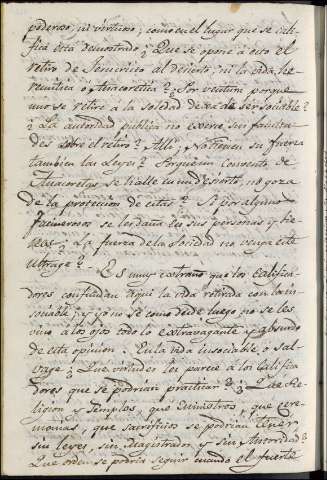 poderoso, ni virtuoso; como en el lugar que se cali-
ficó está demostrado ¿ Que se opone à esto el
retiro de Jesucristo al desierto, ni la vida he-
remitica ó Anacoretica? ¿Por ventura porque
uno se retire à la soledad dexa de ser sociable?
¿ La autoridad publica no exerce sus faculta-
des sobre el retiro? Alli, ¿ no tienen su fuerza
tambien las Leyes? Porque un convento de
Anacoretas se halle en un desierto, no goza
de la proteccion de estas? Si por algunos
facinerosos se les daña en sus personas y bie-
nes ¿ La fuerza de la Sociedad no venga este
ultrage? Es muy extraño que los califica-
dores confundan aqui la vida retirada con la in-
sociable; y yo no sé como desde luego no se les
vino à los ojos todo lo extravagante y absurdo
de esta opinion. En la vida insociable ó sal-
vage ¿ Que virtudes les parece à los califica-
dores que se podrian practicar? ¿ Que Re-
ligion y Templos, que Ministros, que cere-
monias, que sacrificios se podrian tener
sin leyes, sin Magistrados y sin Autoridad?
Que orden se podria seguir cuando el fuerte